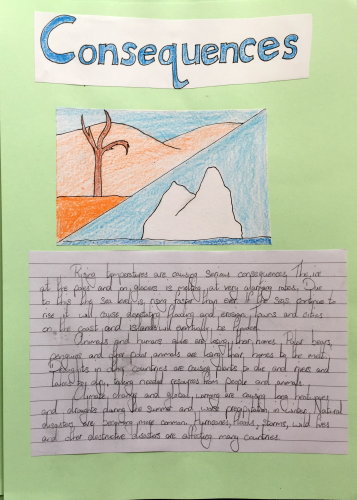 Consequences
Rising temperatures are causing serious consequences. The ice
at the poles and in glaciers is melting at very alarming rates. Due
to this the sea level is rising faster than ever. If the seas continue to
rise it will cause devastating flooding and erosion, towns and cities
on the coast and islands will eventually be flooded.
Animals and humans alike are losing their homes. Polar bears,
penguins and other polar animals are losing their homes to the melt.
Droughts in other countries are causing plants to die and rivers and
lakes to dry, taking needed resources from people and animals.
Climate change and global warming are causing long heatwaves
and droughts during the summer and worse precipitation in winter. Natural
disasters are becoming more common. Hurricanes, floods, storms, wild fires
and other destructive disasters are affecting many countries.